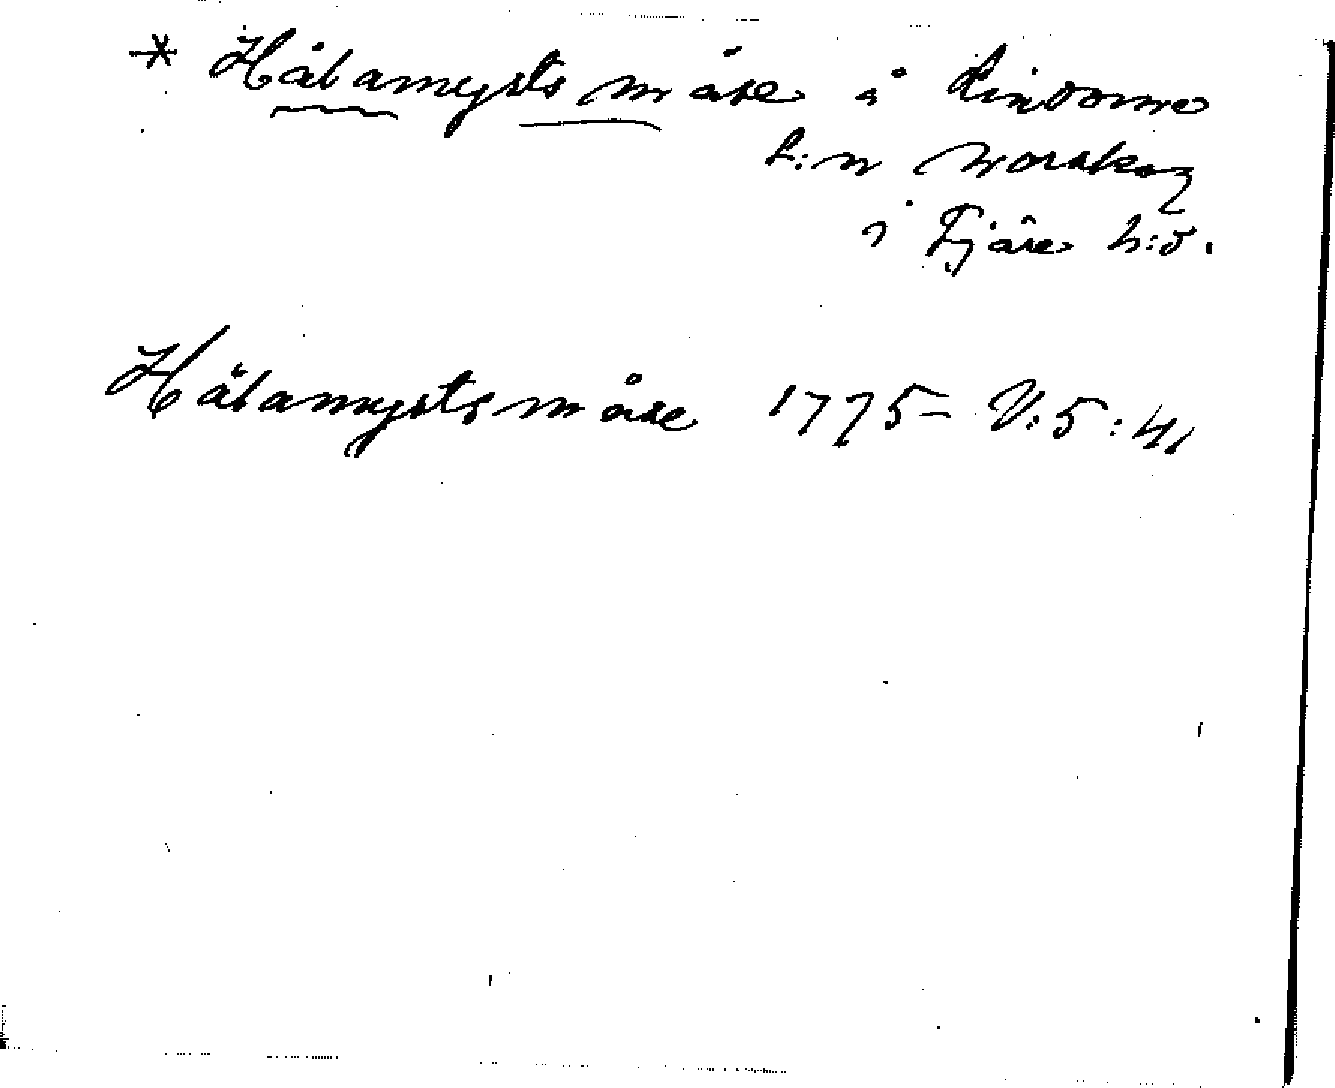 * Hålamyrsts måse å Lindome
s:n norskog
i Fjäre h:d.
Hålamyrstsmåse 1775 - V:5:41